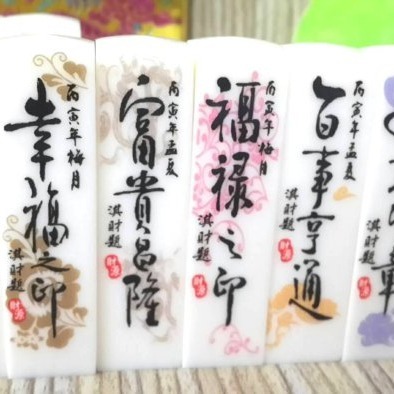 幸福之印
丙寅年梅月
淇財題
財源
富貴昌隆
丙寅年孟夏
淇財題
財源
福祿之印
丙寅年梅月
淇財題
財源
百事亨通
丙寅年孟夏
淇財題
財源